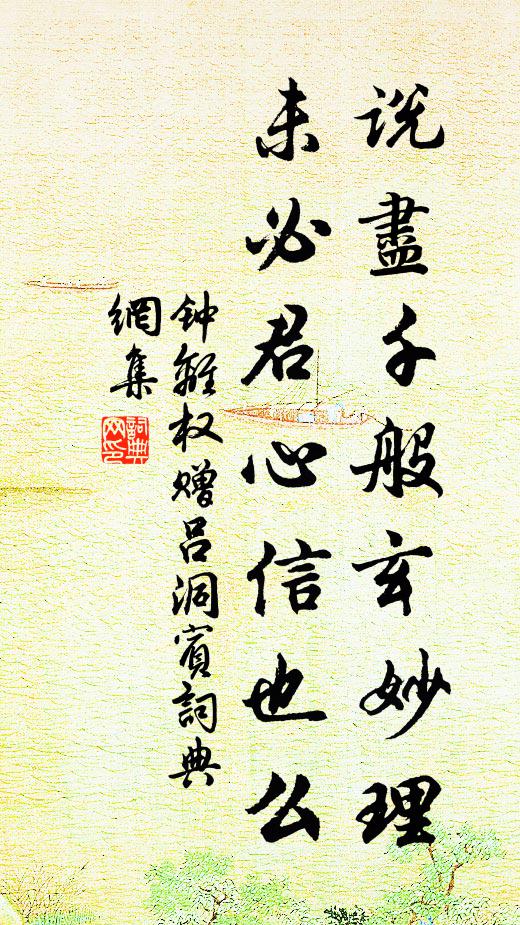 说盡千般玄妙理
未必君心信也么
钟離权赠吕洞賓詞典
網集
詞典
网印